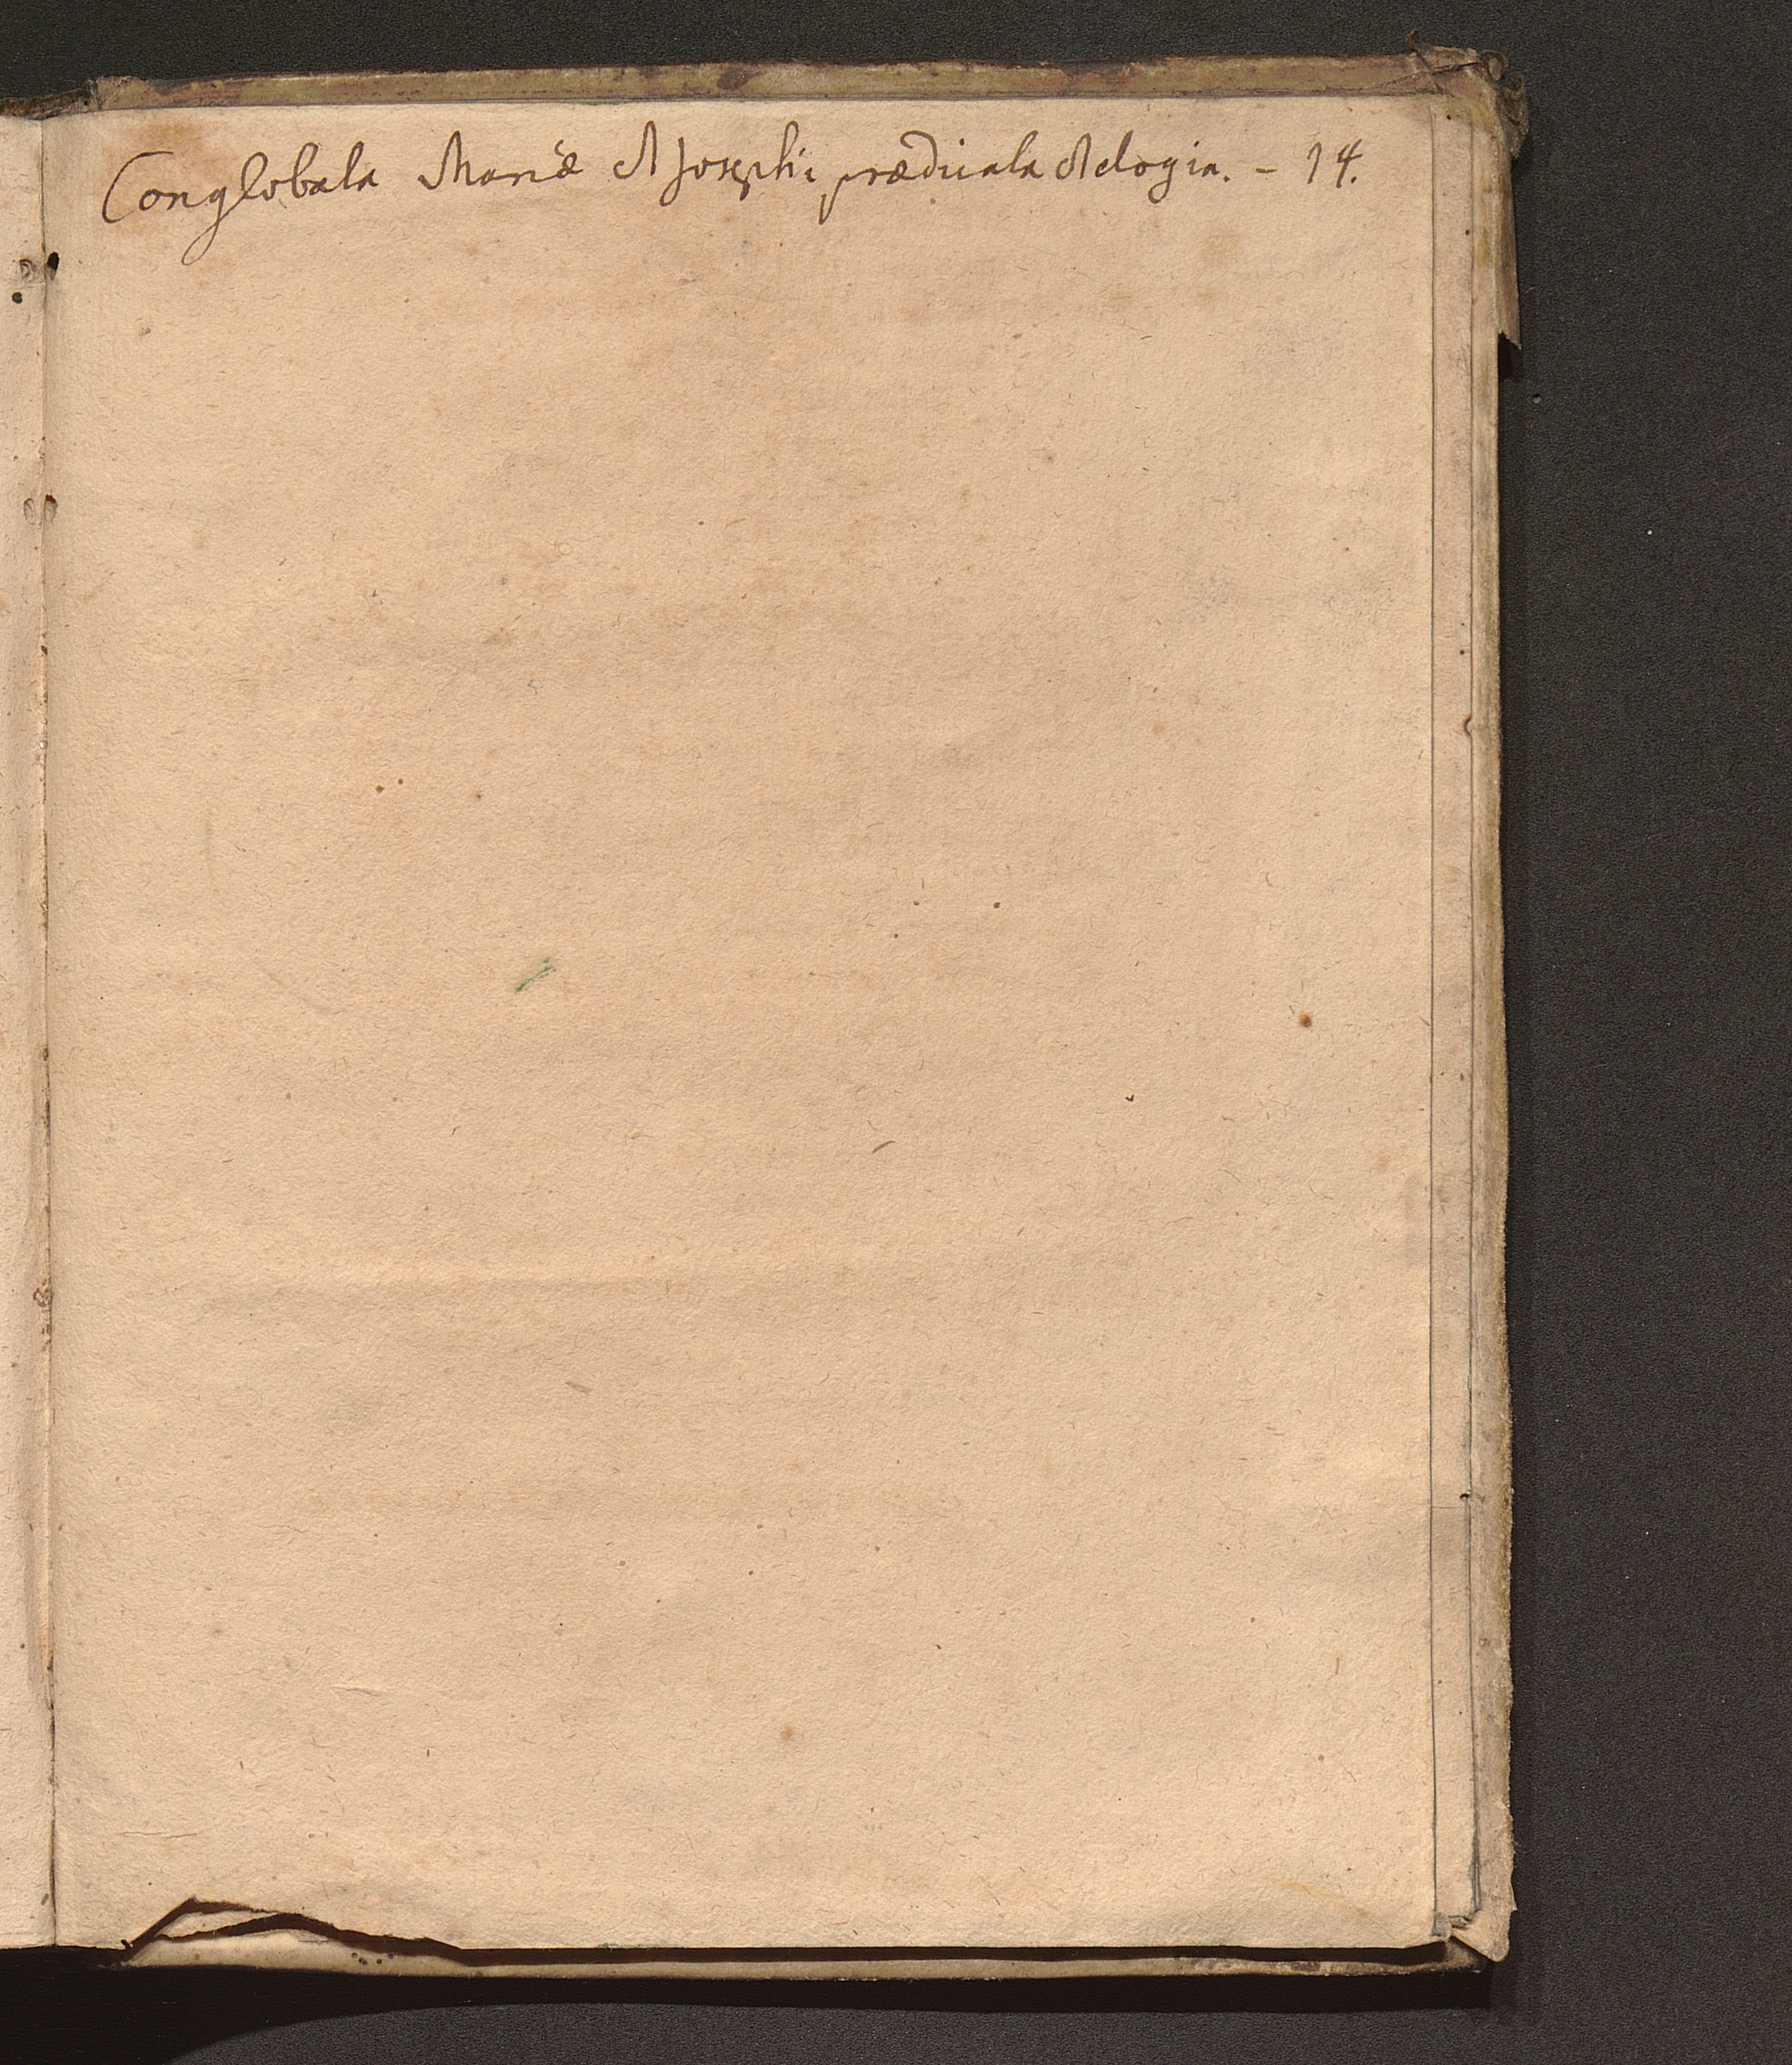 Conglobata Mariæ et Josephi prædicata et elogia. - 14.